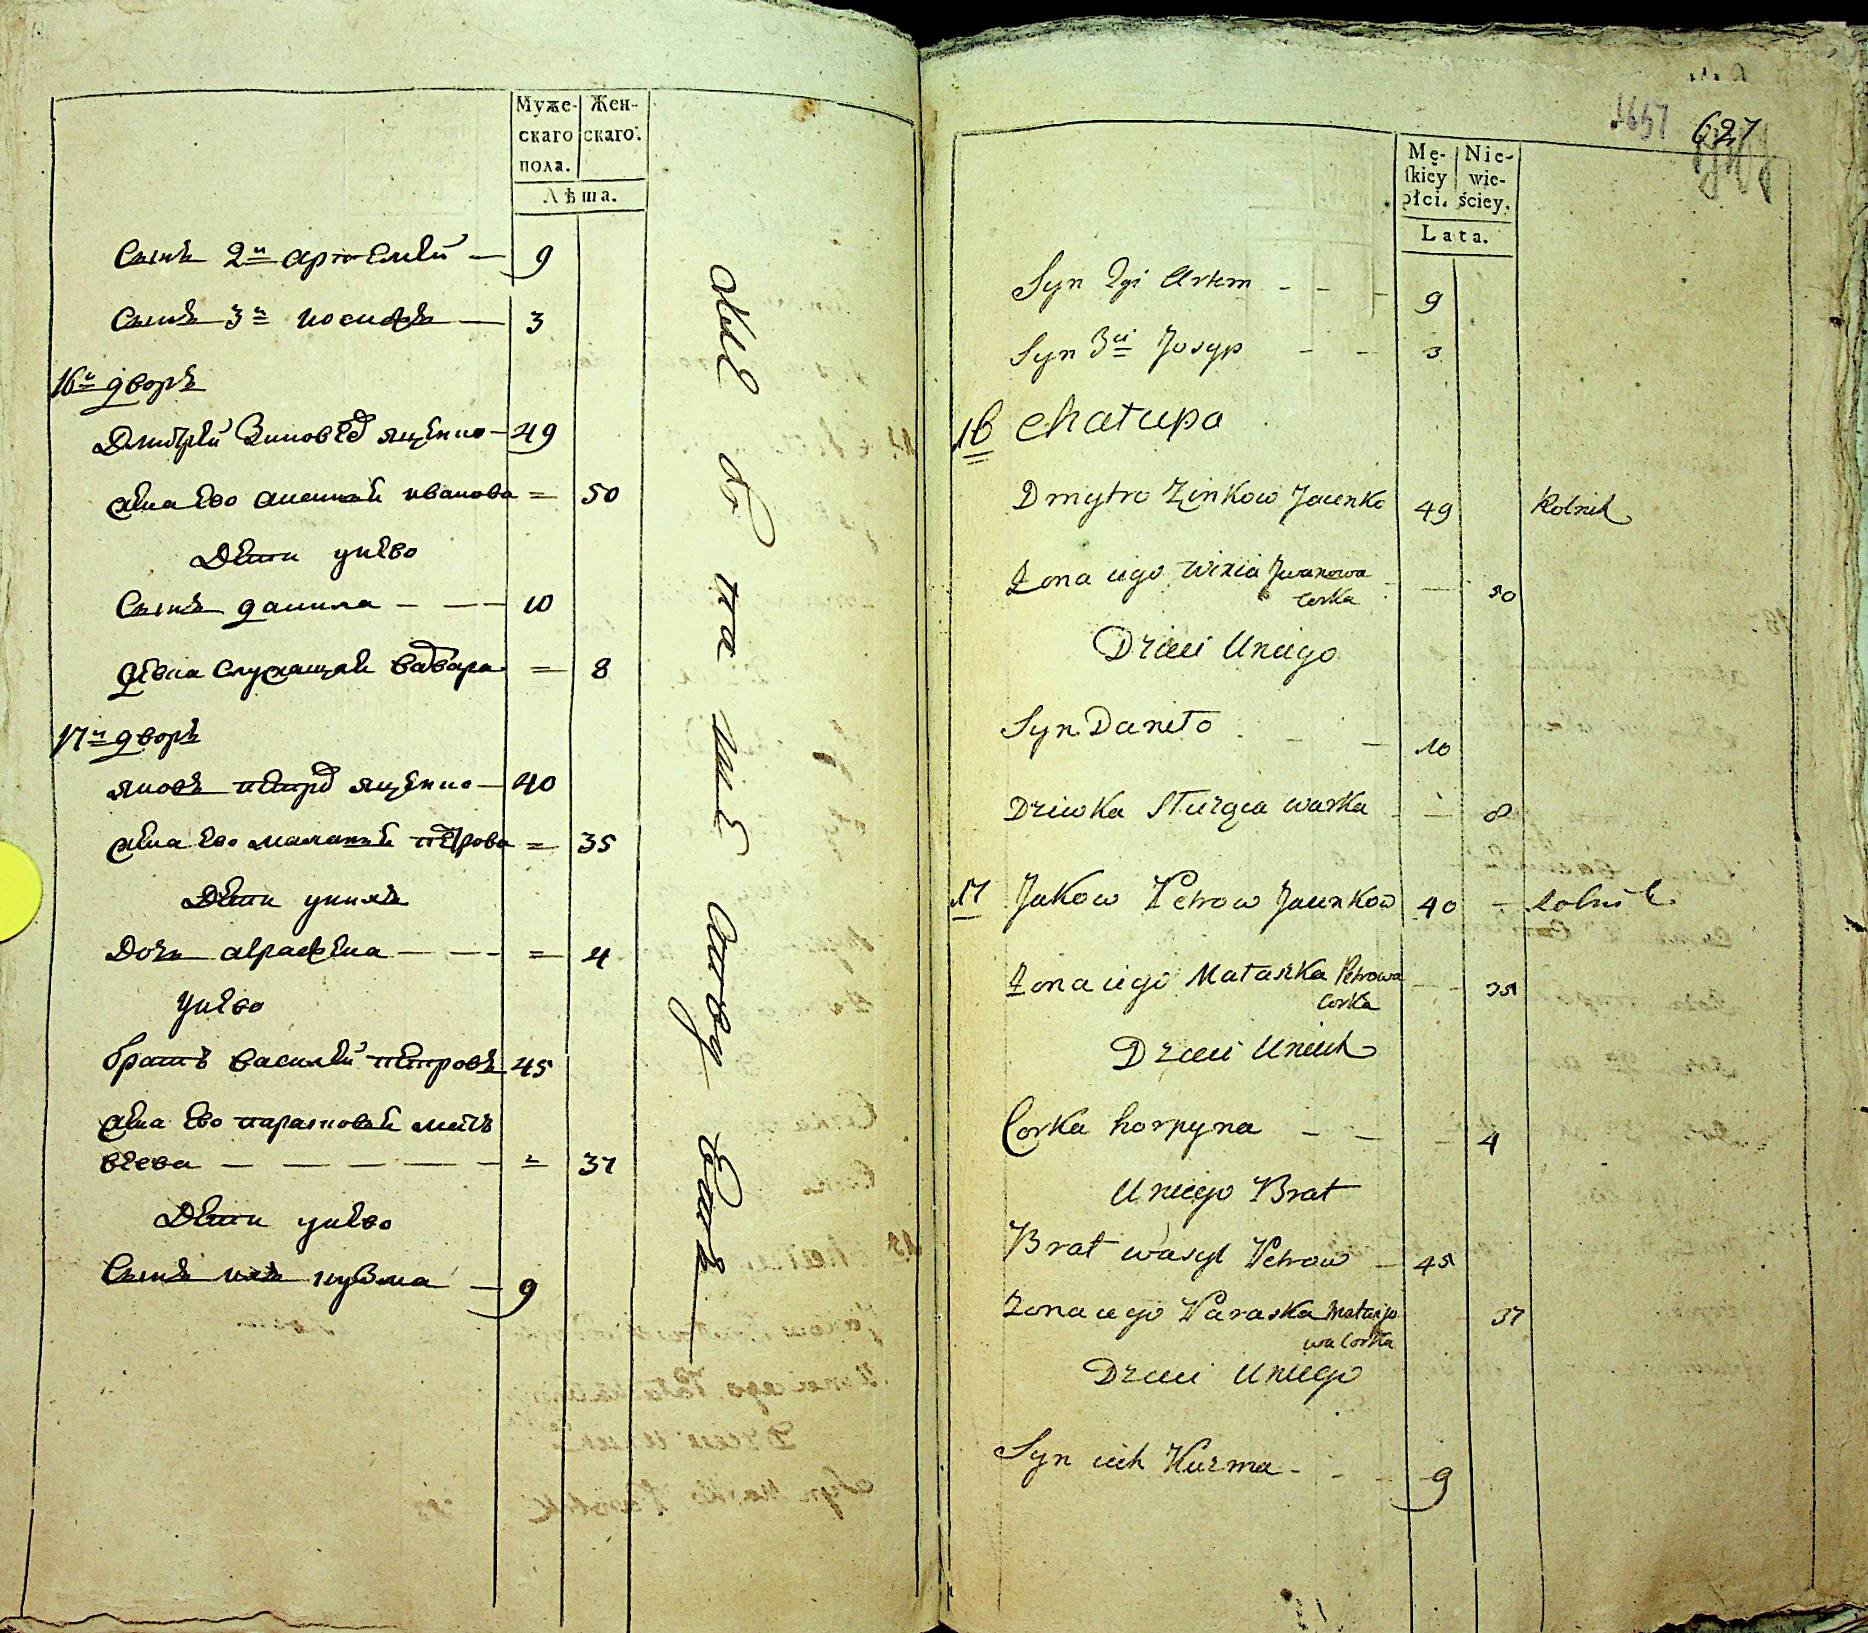 Муже-
скаго
пола.
Жен-
скаго.
Лѣта.
Сынъ 2й Артемей — 9
Сынъ 3й Иосифъ — 3
16й дворъ
Дмитрей Зиновъев Яценко — 49
жена ево Ивановa = 50
Дети унево
Сынъ Данила — — — 10
девка служащая Варвара = 8
17й дворъ
Яковъ Петров Яценко — 40
жена ево Маланья Петрова = 35
Дети унихъ
Дочь Аграфена — — — = 4
Унево
братъ Василей Петровъ 45
жена ево Парасковья Мать
веева — — — — — = 37
Дети унево
Сынъ ихъ Кузма — 9
627
Mę-
skiey
płci.
Nie-
wie-
ściey.
Lata.
Syn 2gi Artem - - - 9
Syn 3ci Josyp - - 3
16 chałupa
Dmytro Zinkow Jacenko 49 Rolnik
Żona iego Iwanowa
corka — 50
Dzieci Uniego
Syn Daneło - - — 10
Dziewka Służąca warka - — 8
17 Jakow Petrow Jacenkow 40 — Rolnik
Żona iego Małaszka Petrowa
corka - - 35
Dzieci Unich
Corka horpyna — — — 4
Uniego Brat
Brat wasyl Petrow — 45
Zona iego Paraska Matwijo
wa Corka 37
Dzieci Uniego
Syn ich Kuzma - - - 9